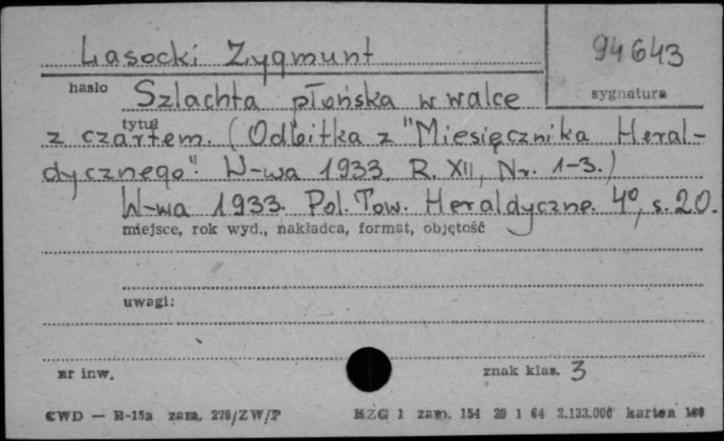 Lasocki Zygmunt
94643
hasło
sygnatura
Szlachta płońska w walce
tytuł
z czartem. (Odbitka z "Miesięcznika Heral-
dycznego". W-wa 1933. R. XII, Nr. 1-3.)
W-wa 1933. Pol. Tow. Heraldyczne. 4º, s. 20.
miejsce, rok wyd., nakładca, format, objętość
uwagi:
nr inw.
znak klas. 3
CWD — B-15a zam. 276/ZW/P
HZG 1 zam. 154 29 1 64 2.133.000 kartea